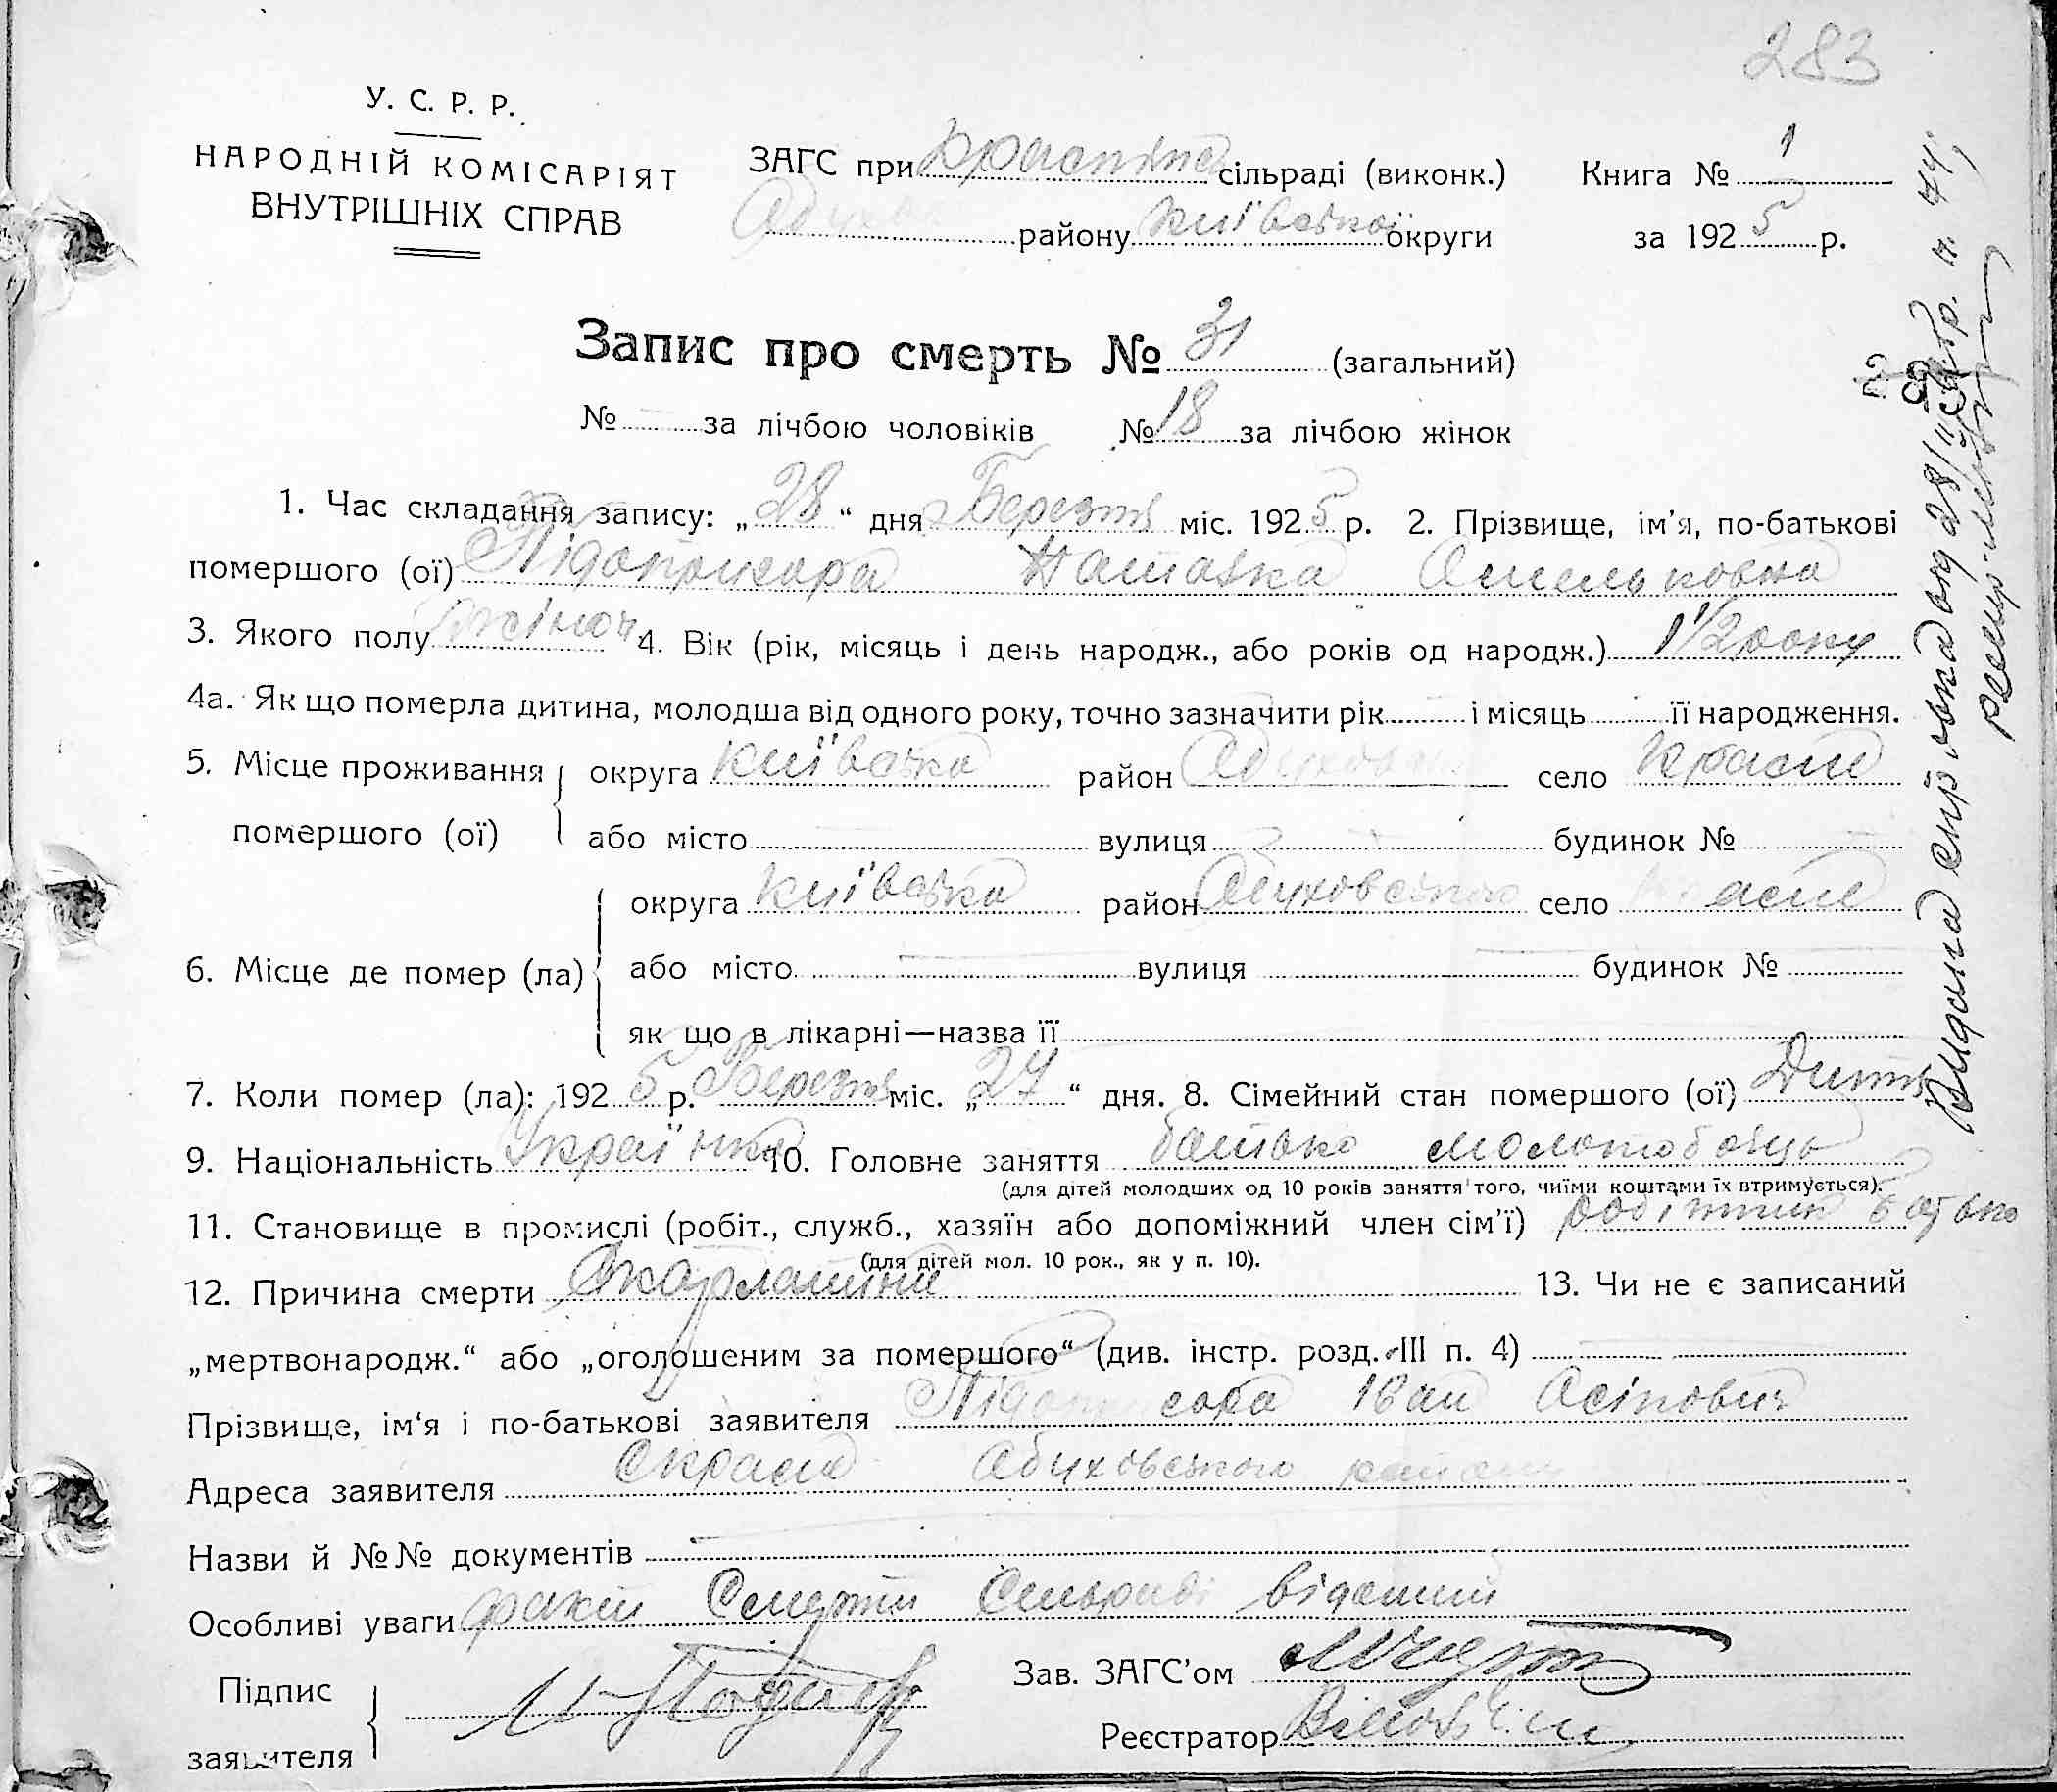 283
У. С. Р. Р.
НАРОДНІЙ КОМІСАРІЯТ
ВНУТРІШНІХ СПРАВ
ЗАГС при сільраді (виконк.)
району Київської округи
Книга № 1
за 1925 р.
Запис про смерть № 31 (загальний)
№ — за лічбою чоловіків № 18 за лічбою жінок
1. Час складання запису: „28“ дня Березня міс. 1925 р. 2. Прізвище, ім'я, по-батькові
помершого (ої) Підопригора Наталка Омельковна
3. Якого полу жіноч 4. Вік (рік, місяць і день народж., або років од народж.) 1 1/2 року
4а. Як що померла дитина, молодша від одного року, точно зазначити рік і місяць її народження.
5. Місце проживання помершого (ої) округа Київська район село Красне
або місто вулиця будинок №
6. Місце де помер (ла) округа Київська район Обуховського село асне
або місто — вулиця — будинок №
як що в лікарні—назва її
7. Коли помер (ла): 1925 р. Березня міс. „27“ дня. 8. Сімейний стан помершого (ої) Дитя
9. Національність Українка 10. Головне заняття батько молотобоєць
(для дітей молодших од 10 років заняття того, чиїми коштами їх втримується).
11. Становище в промислі (робіт., служб., хазяїн або допоміжний член сім'ї) робітник батько
(для дітей мол. 10 рок., як у п. 10).
12. Причина смерти Скарлатина 13. Чи не є записаний
„мертвонародж.“ або „оголошеним за помершого“ (див. інстр. розд. III п. 4) —
Прізвище, ім'я і по-батькові заявителя Підопригора Іван Осіпович
Адреса заявителя с Красне Обухівського району
Назви й №№ документів —
Особливі уваги факт Смерти Сельраді відомий
Підпис заявителя
Зав. ЗАГС'ом
Реєстратор